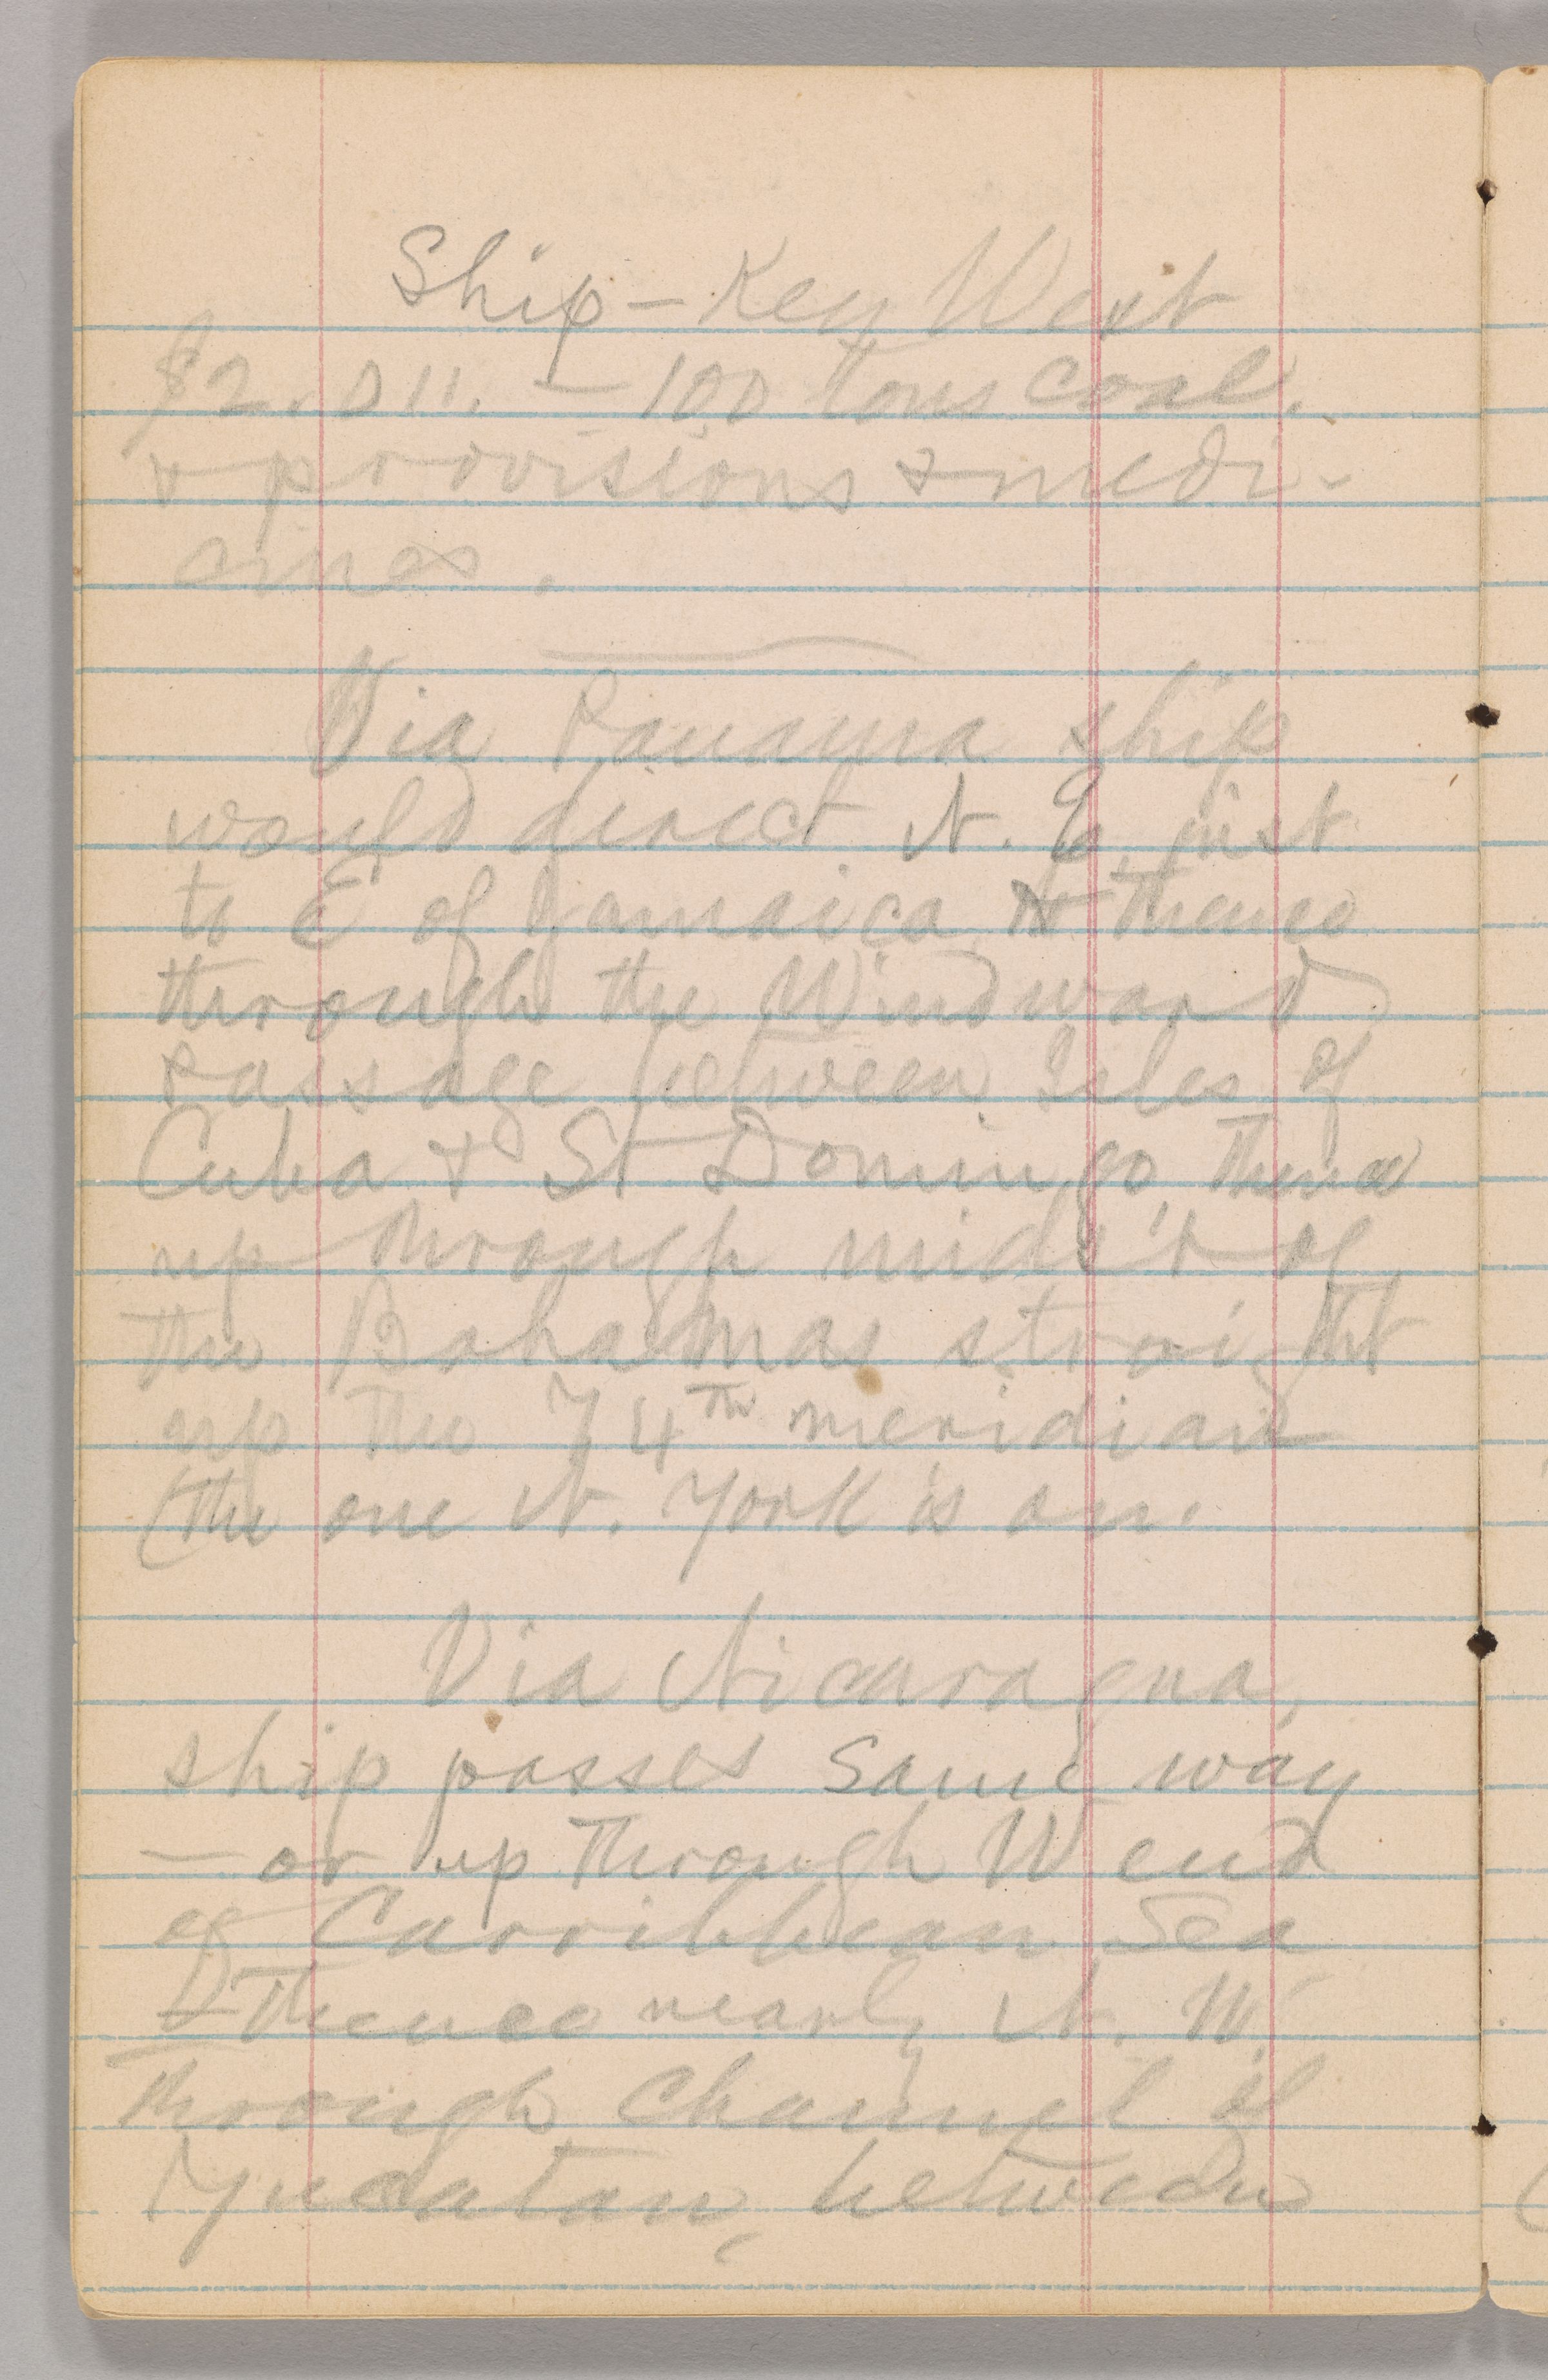 Ship — Key West
$2.011. — 100 tons coal.
& provisions & medi-
cines.
Via Panama ship
would direct N. E, just
to E of Jamaica & thence
through the Windward
Passage between Isles of
Cuba & St Domingo, thence
up through midst of
the Bahamas straight
up the 74th meridian
(the one N. York is on.
Via Nicaragua,
ship passes same way
— or up through W end
of Carribbean Sea
& thence nearly N. W.
through Channel of
Yucatan, between